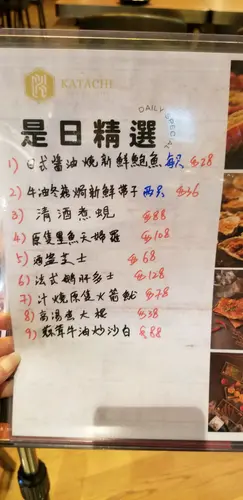 KATACHI
DAILY SPECIAL
是日精選
1) 日式醬油燒新鮮鮑魚 每只 $28
2) 牛油 焗新鮮帶子 兩只 $36
3) 清酒煮蜆 $88
4) 原隻墨魚天婦羅 $108
5) 海盗 $68
6) 法式鵝肝多士 $128
7) 汁燒原隻火箭魷 $78
8) 高湯煮大根 $38
9) 蒜茸牛油炒沙白 $88